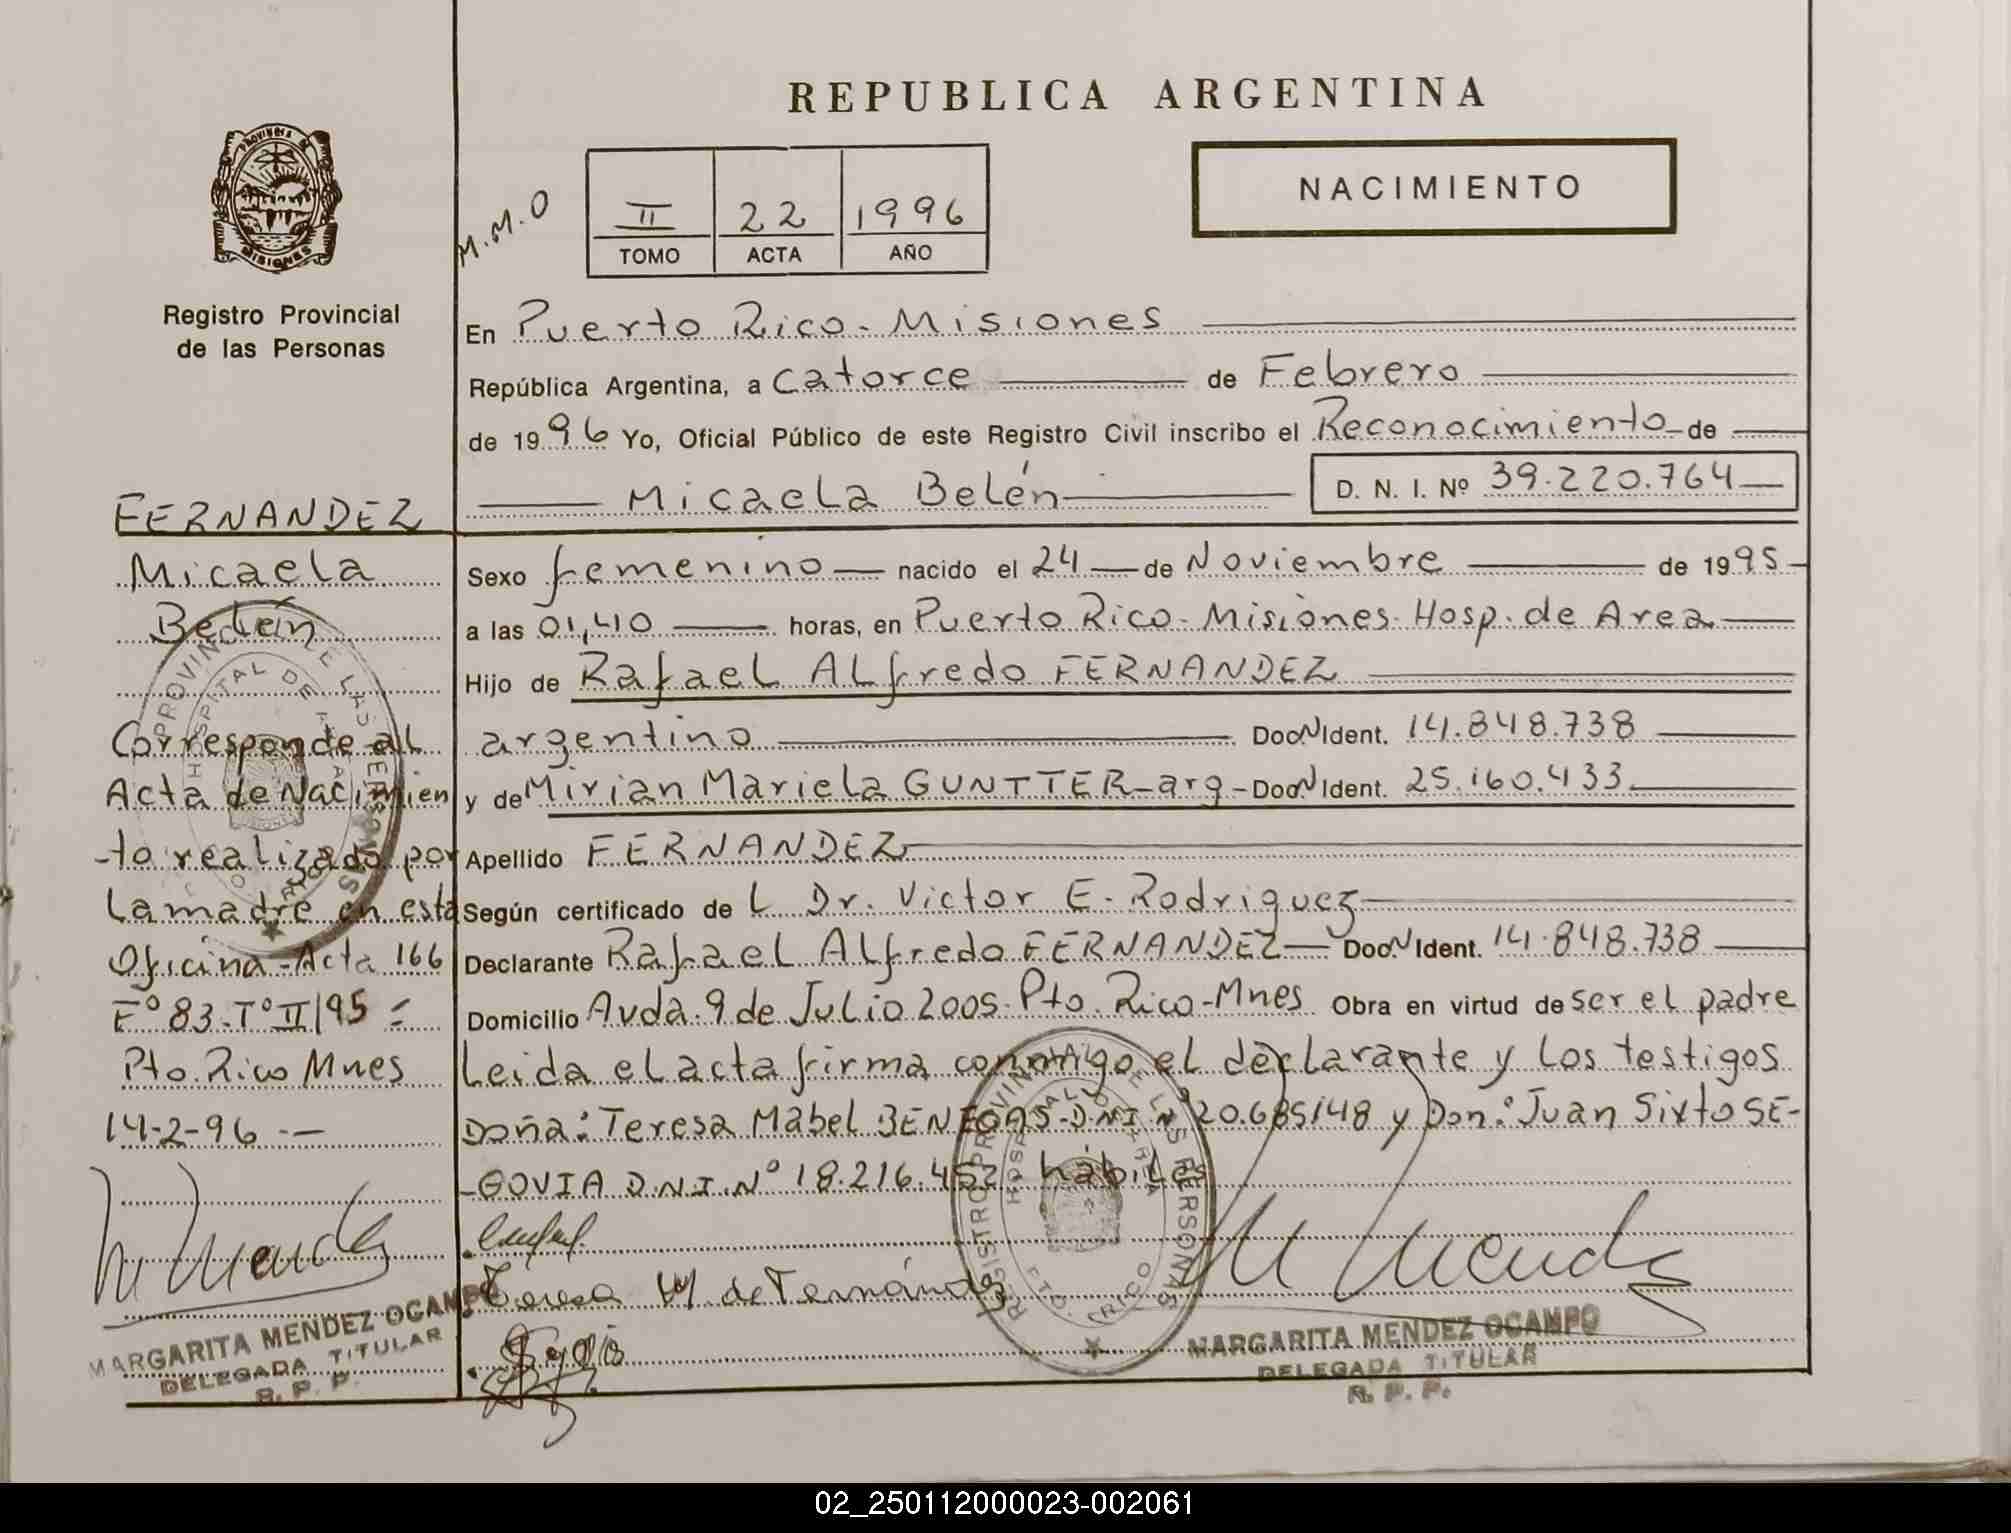 REPUBLICA ARGENTINA
NACIMIENTO
M.M.O
II 22 1996
TOMO ACTA AÑO
PROVINCIA DE
MISIONES
Registro Provincial
de las Personas
En Puerto Rico - Misiones
República Argentina, a catorce de Febrero
de 1996 Yo, Oficial Público de este Registro Civil inscribo el Reconocimiento de
Micaela Belén D. N. I. Nº 39.220.764
FERNANDEZ
Micaela
Belén
Corresponde al
Acta de Nacimien
-to realizado por
la madre en esta
Oficina - Acta 166
Fº 83 - Tº II/95 =
Pto. Rico Mnes
14-2-96 --
Sexo femenino nacido el 24 de Noviembre de 1995
a las 01,40 horas, en Puerto Rico - Misiones - Hosp. de Area
Hijo de Rafael Alfredo FERNANDEZ
argentino Doc. N Ident. 14.848.738
y de Mirian Mariela GUNTTER - arg - Doc. N Ident. 25.160.433
Apellido FERNANDEZ
Según certificado de L Dr. Victor E. Rodriguez
Declarante Rafael Alfredo FERNANDEZ Doc. N Ident. 14.848.738
Domicilio Avda. 9 de Julio 2005 - Pto. Rico - Mnes Obra en virtud de ser el padre
Leida el acta firma conmigo el declarante y los testigos
Doña: Teresa Mabel BENEGAS - D.N.I. Nº 20.685148 y Don: Juan Sixto SE-
-GOVIA D.N.I. Nº 18.216.452 hábiles
Teresa M. de Fernández
M Mendez
MARGARITA MENDEZ OCAMPO
DELEGADA TITULAR
R. P. P.
M Mendez
MARGARITA MENDEZ OCAMPO
DELEGADA TITULAR
R. P. P.
REGISTRO PROVINCIAL DE LAS PERSONAS
HOSPITAL DE AREA
PTO. RICO
02_250112000023-002061